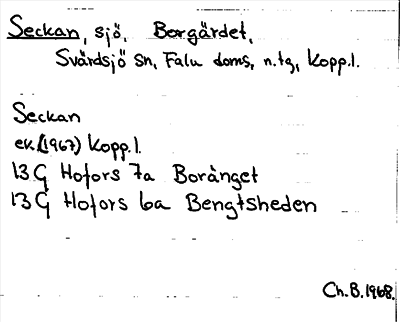 Seckan, sjö. Borgärdet,
Svärdsjö sn, Falu doms. n. tg, Kopp. l.
Seckan
ek. (1967) Kopp. l.
13 G Hofors 7a Borånget
13 G Hofors 6a Bengtsheden
Ch. B. 1968.